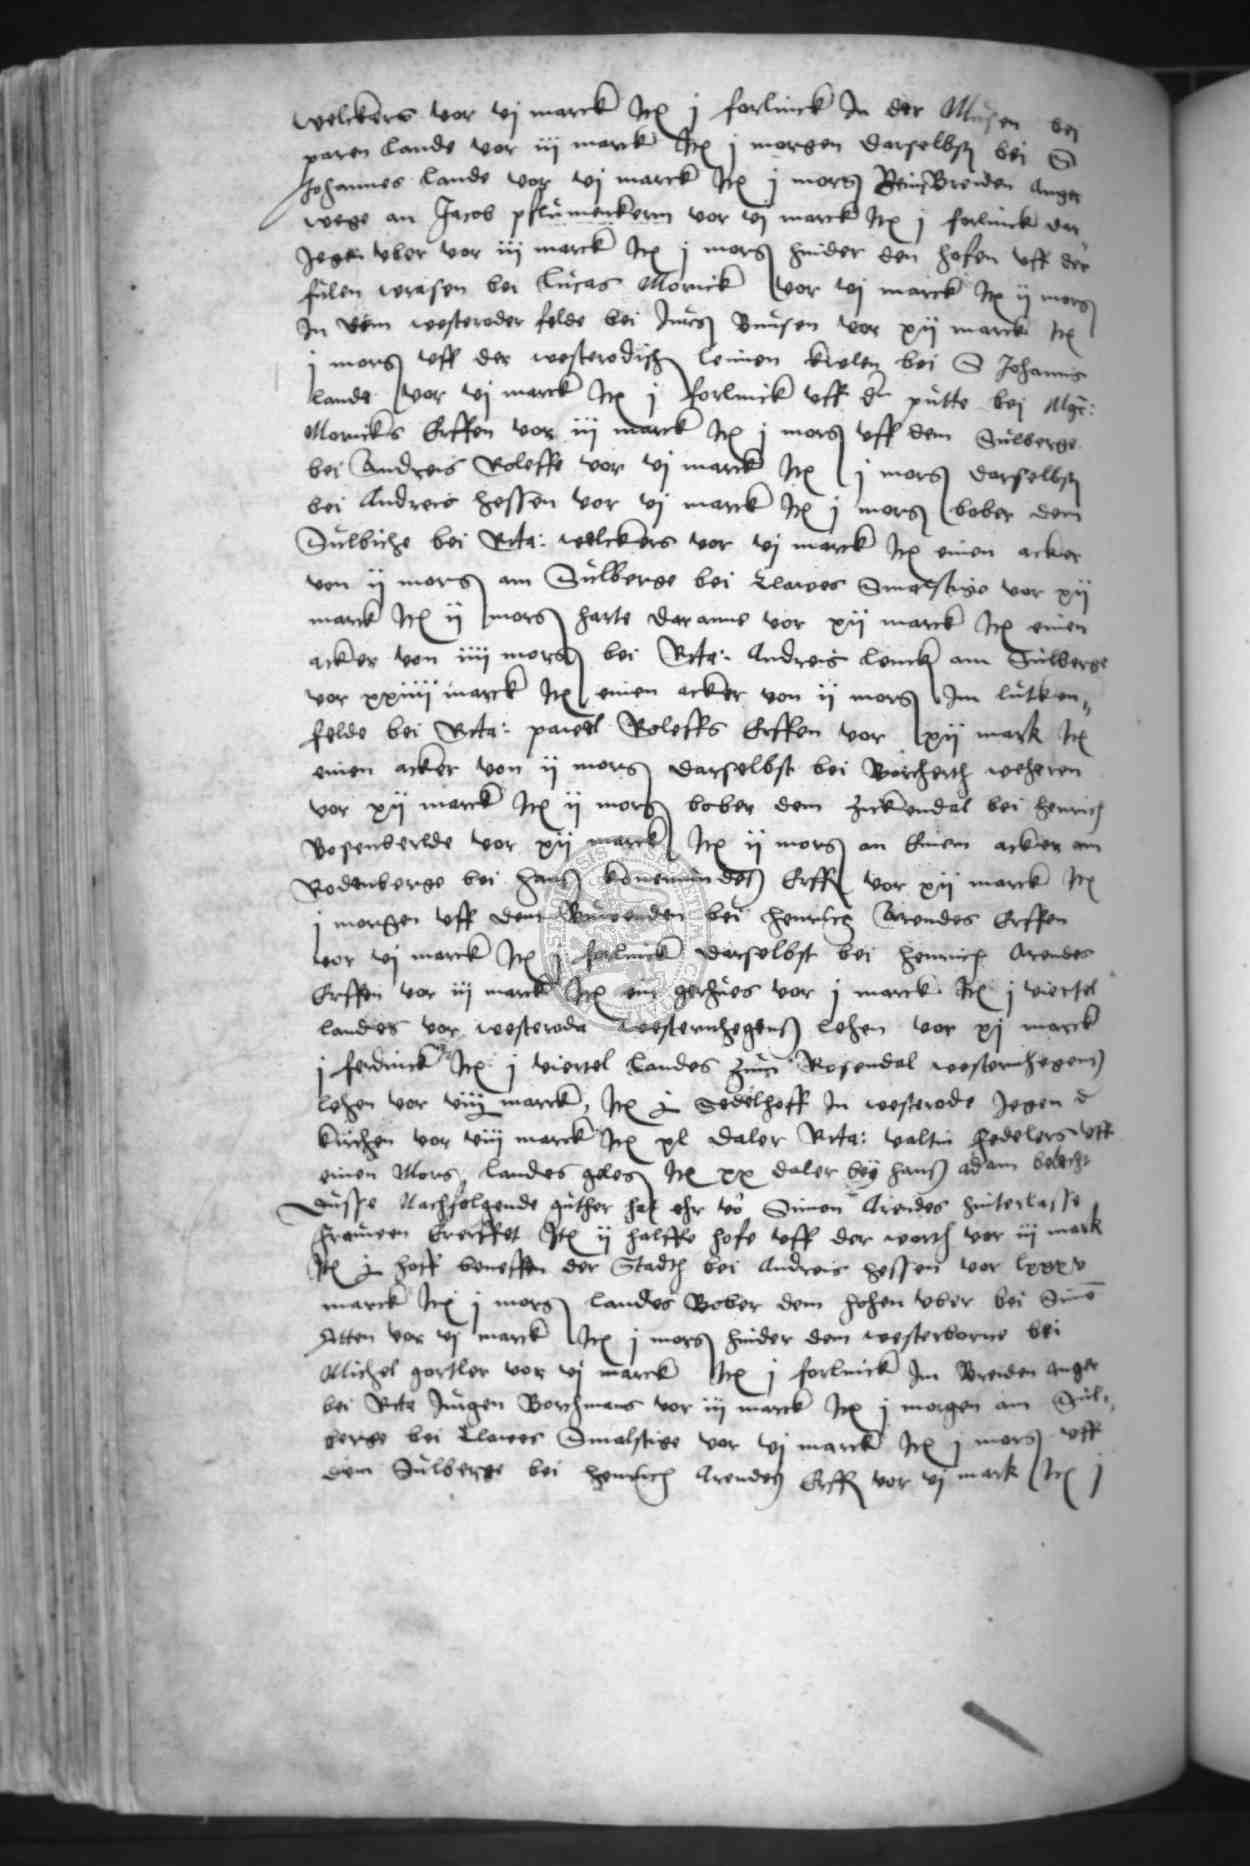 welckers vor vj marck Itē j forlinck In der Masen bei
paren lande vor iij marck Itē j morgen darselbst bei S
Johannes lande vor vj marck Itē j morg Breiden Anger
wege an Jacob pflumenkern vor vj marck Itē j forlinck dar„
Jegen vber vor iij marck Itē j morg hinder den hofen vff der
fulen wrasen bei Lucas Mornick vor vj marck Itē ij morg
In dem westeroder felde bei Jurg Bunsen vor xij marck Itē
j morg vff der westerodisch leimen kulen bei S Johannis
lande vor vj marck Itē j forlinck vff dr putte bei
Mornicks Erffen vor iij marck Itē j morg vff dem Sulberge
bei Andreis Roleffs vor vj marck Itē j morg darselbst
bei Andreis hessen vor vj marck Itē j morg bober dem
Sulbiche bei Rtta: welckers vor vj marck Itē einen acker
von ij morg am Sulberge bei Clawes Smalstige vor xij
marck Itē ij morg harte daranne vor xij marck Itē einen
acker von iiij morg bei Rtta: Andreis lencke am Sulberge
vor xxiiij marck Itē einen acker von ij morg Im lutken„
felde bei Rtta: pawel Roleffs Erffen vor xij mark Itē
einen acker von ij morg darselbst bei Borcherth weheren
vor xij marck Itē ij morg bober dem Zickendal bei henrich
Bosenberlde vor xij marck Itē ij morg an Einem acker am
Rodenberge bei hans konemundes Erffn vor xij marck Itē
j morgen vff dem bei henrich Arendes Erffen
vor vj marck Itē j forlinck darselbst bei henrich Arendes
Erffen vor iij marck Itē ein vor j marck Itē j viertel
landes vor westeroda westernhegens lehen vor xj marck
j ferdinck Itē j viertel landes zum Rosendal westernhegens
lehen vor viij marck, Itē j Sedelhoff In westerode Jegen d
kirchen vor viij marck Itē xl daler Rtta: valtin fedelers vff
einen Morg landes geles Itē xx daler bey hans adam
Dusse Nachfolgende guther hat ehr vō Simon Arendes hinterlasse
frauwen Ererffet Itē ij halffe hofe vff der worth vor iij mark
Itē j hoff beneffen der Stadth bei Andreis hessen vor lxxxv
marck Itē j morg landes Bober dem hohen vber bei Simō
Atten vor vj marck Itē j morg hinder dem westerborne bei
Michel gortler vor vj marck Itē j forlinck Im Breiden anger
bei Rtta Jurgen Borchmans vor iij marck Itē j morgen am Sul„
berge bei Clawes Smalstige vor vj marck Itē j morg vff
dem Sulberge bei henrich Arendes Erffn vor vj mark Itē j